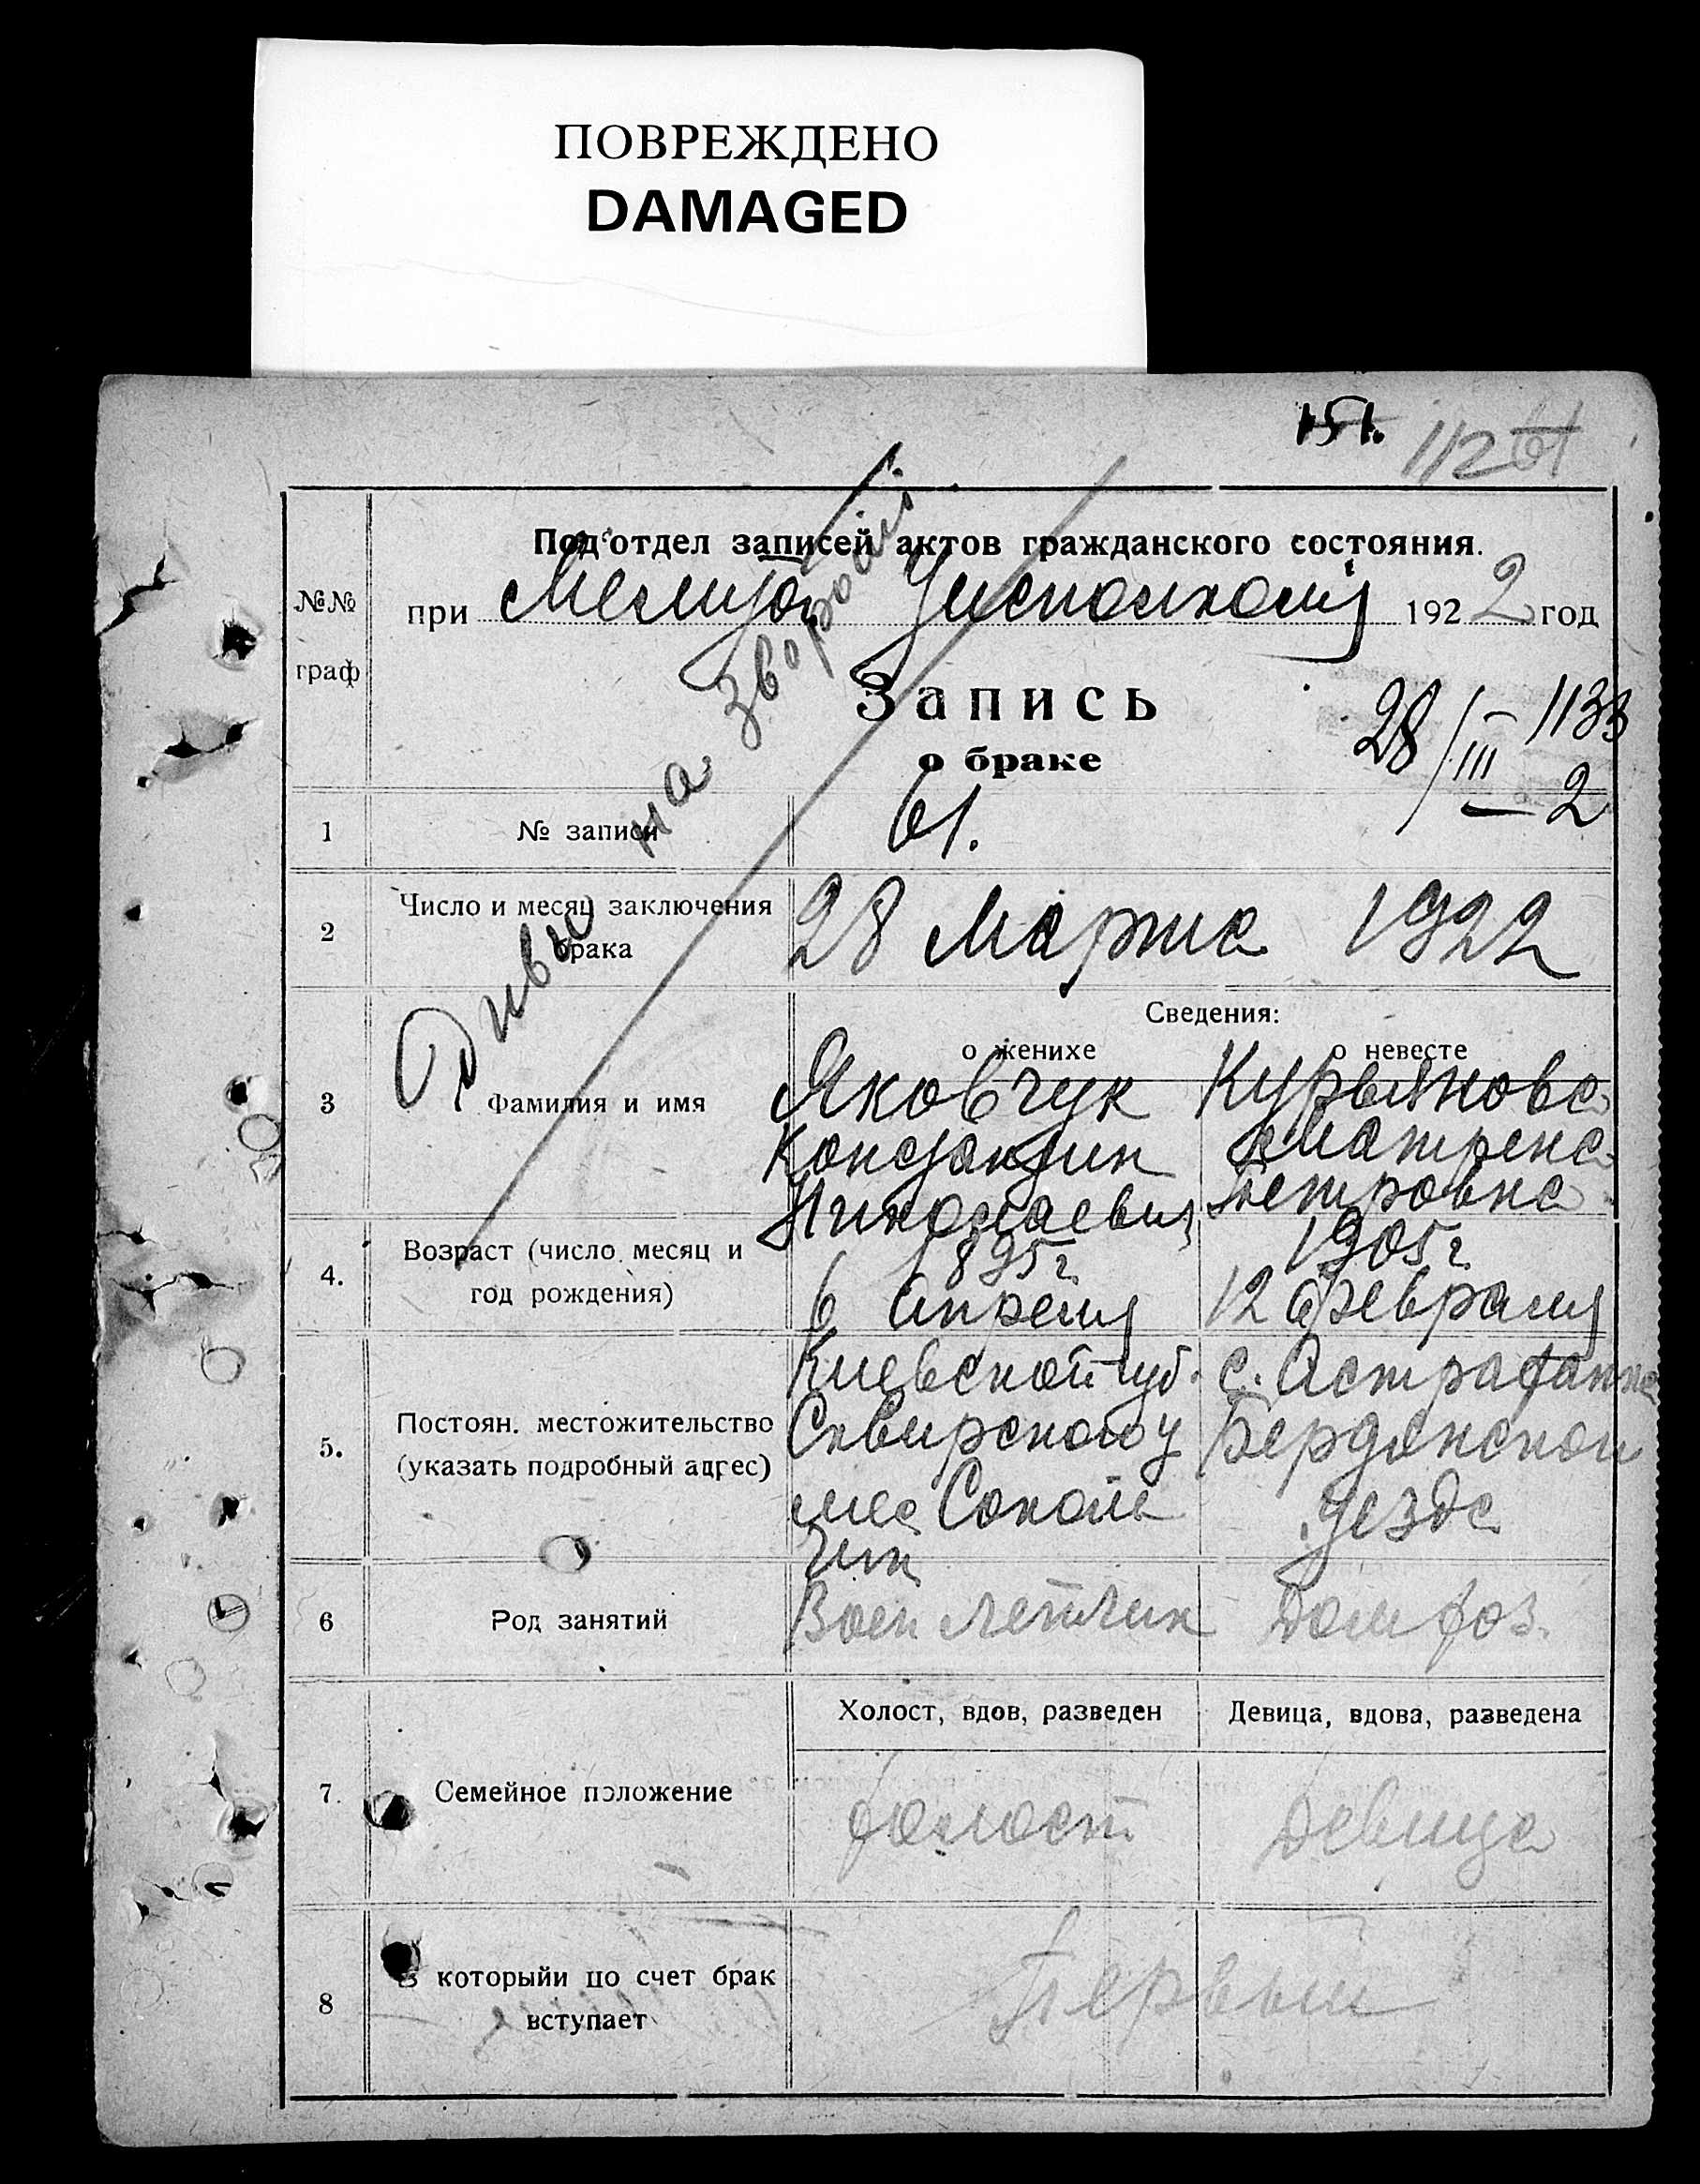 ПОВРЕЖДЕНО
DAMAGED
151. 112 61
№№ граф
Под'отдел записей актов гражданского состояния.
при Мелитоп Уисполкому 1922 год
Запись
о браке
28/III – 1133
— 2
Дивись на звороті
1 № записи 61.
2 Число и месяц заключения брака 28 Марта 1922
Сведения:
о женихе о невесте
3 Фамилия и имя
Яковчук Курьянова
Константин Матрена
Николаевич Петровна
4. Возраст (число месяц и
год рождения)
1895 г. 1905 г.
6 Апреля 12 февраля
5. Постоян. местожительство
(указать подробный адрес)
Киевской губ. с. Астраханка
Сквирского у Бердянского
мес Соколь уезда
чик
6 Род занятий Воен летчик Дом хоз.
Холост, вдов, разведен Девица, вдова, разведена
7. Семейное положение холост девица
8 В которыйи по счет брак
вступает
Первый